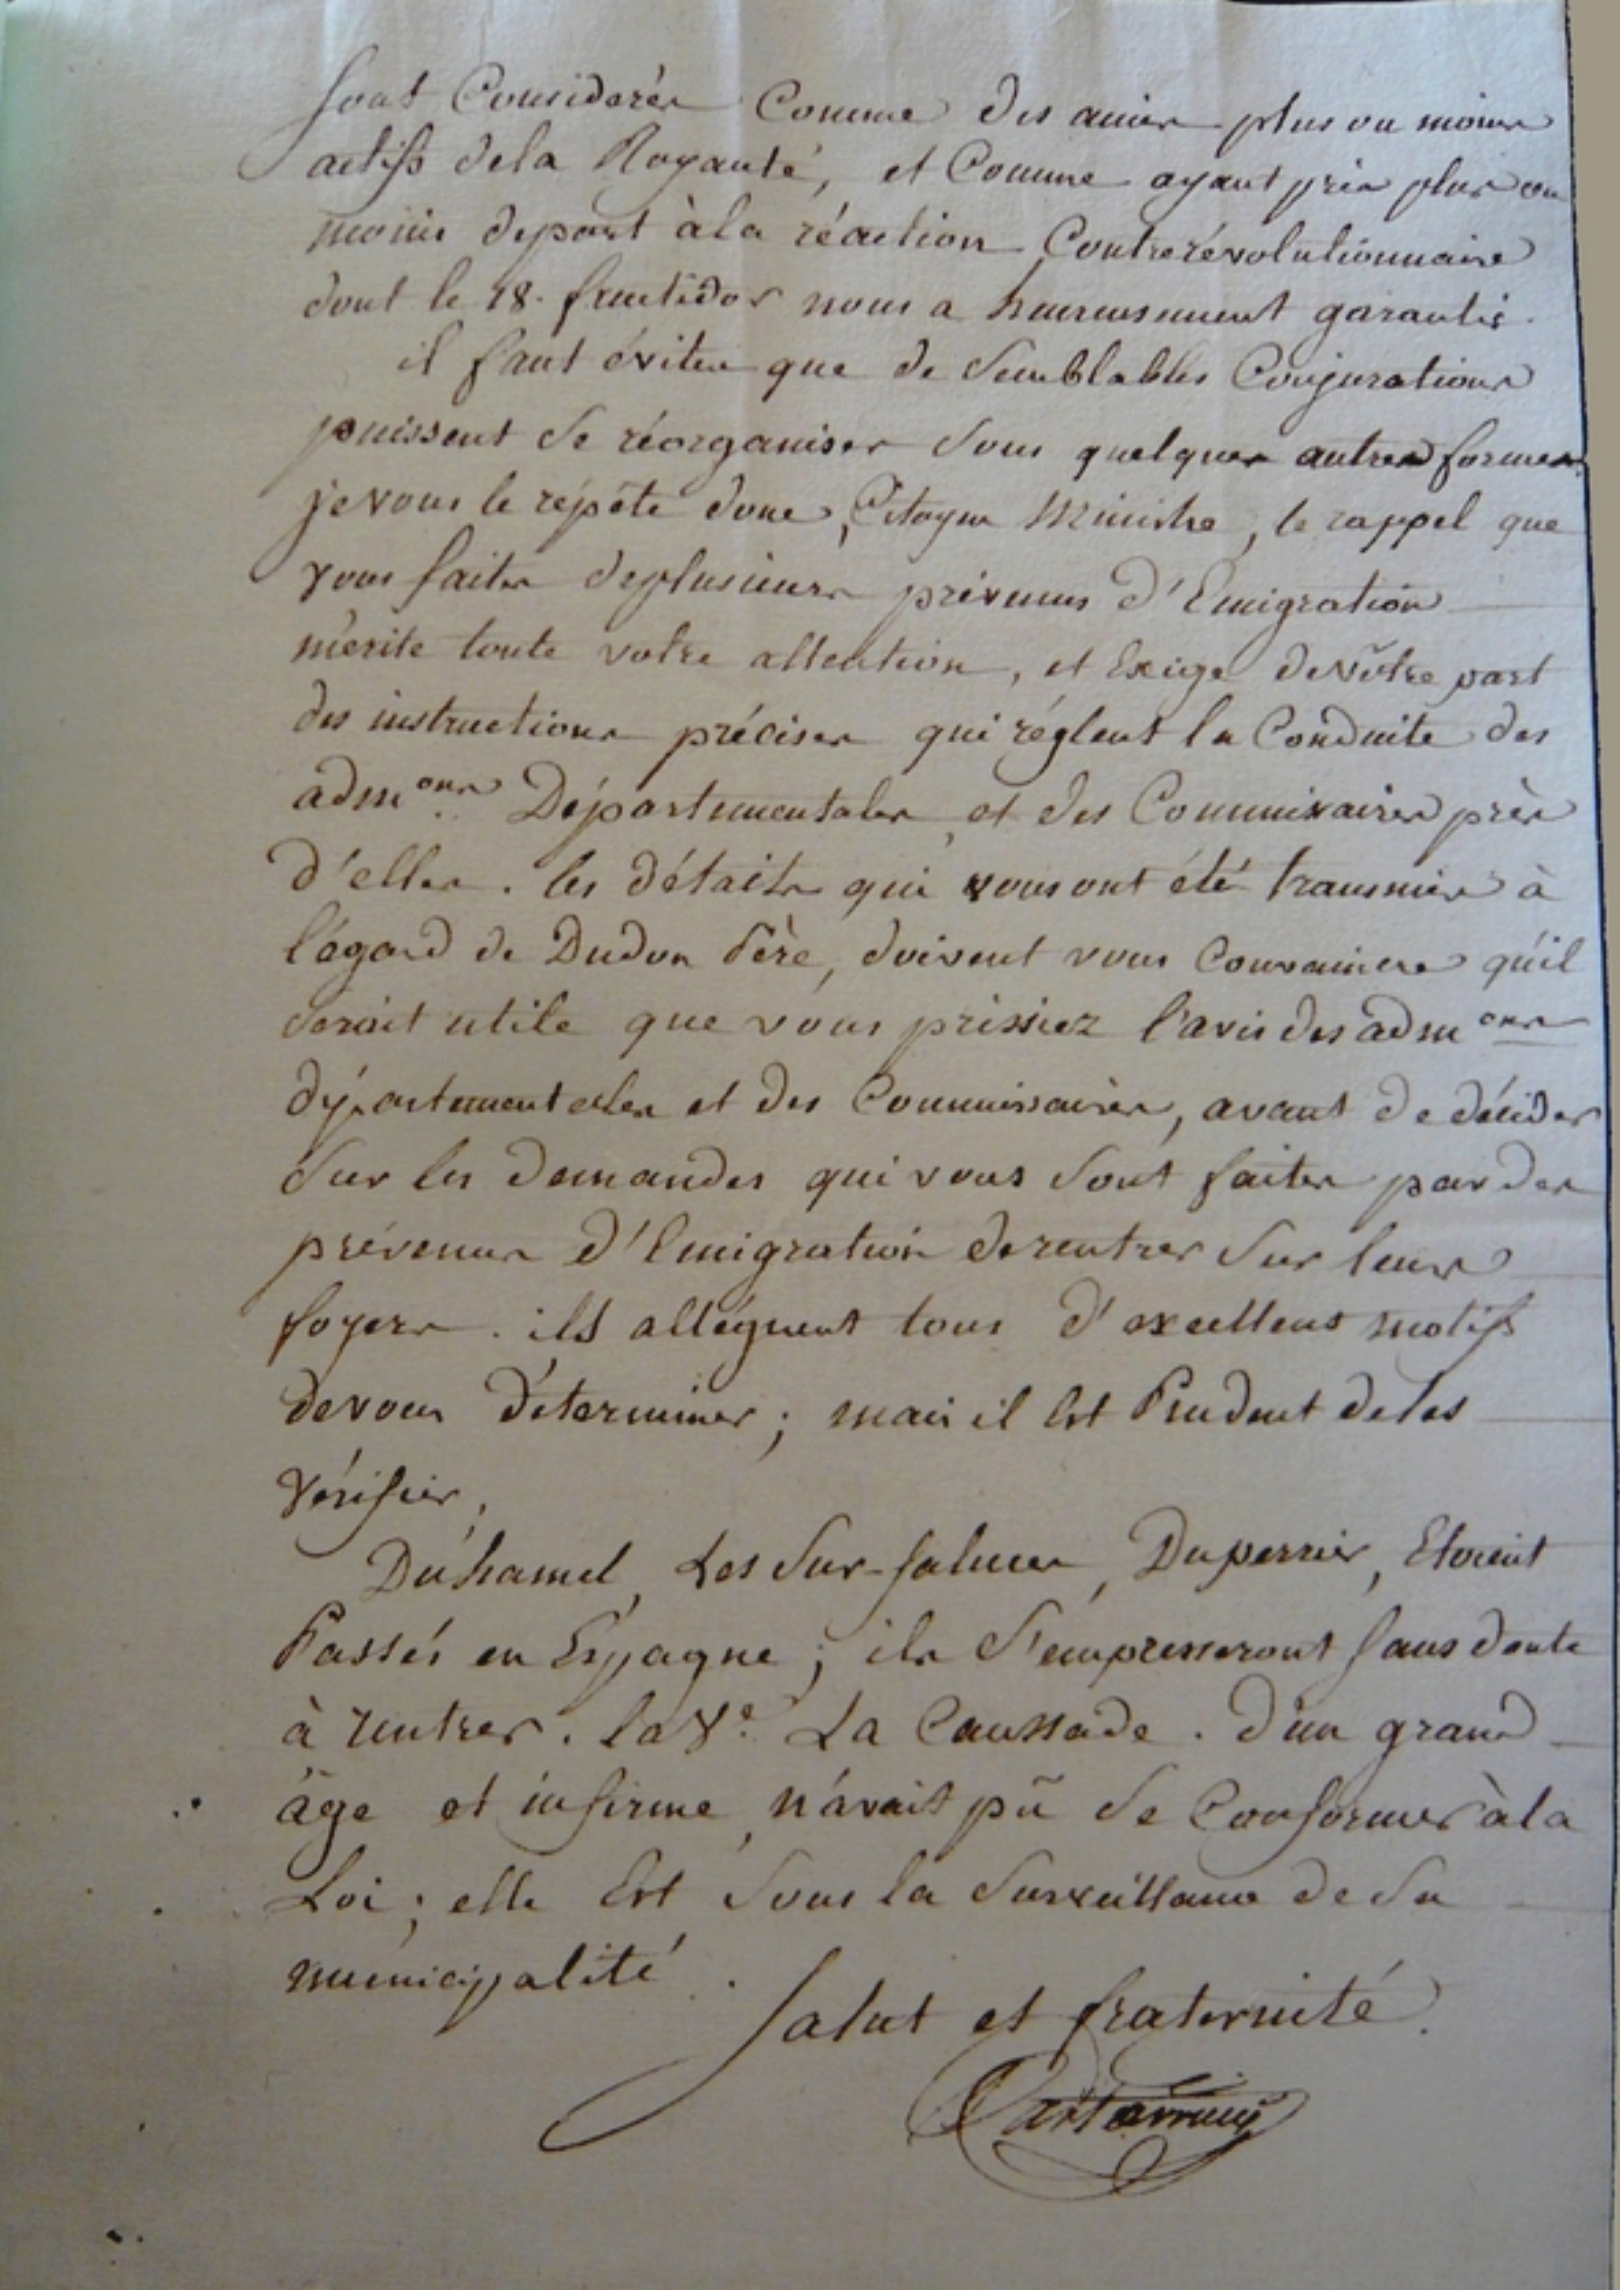 sont Considerés Comme des amis plus ou moins
actifs dela Royauté, et Comme ayant pris plus ou
moins depart àla réaction Contrerévolutionnaire
dont le 18. fructidor nous a heureusement garantis.
il faut éviter que de semblables Conjurations
puissent se réorganiser sous quelques autres formes.
je vous le répéte donc, Citoyen Ministre, le rappel que
vous faites deplusieurs prévenus d'Emigration
mérite toute votre attention, et Exige de vôtre part
des instructions précises qui réglent la Conduite des
adm.ons Départementales, et des Commissaires près
d'elles. les détails qui vous ont été transmis à
l'égard de Dudon Père, doivent vous Convaincre qu'il
serait utile que vous prissiez l'avis des adm ons
départementales et des Commissaires, avant de décider
sur les demandes qui vous sont faites par des
prévenus d'Emigration derentrer sur leurs
foyers. ils alléguent tous d'excellens motifs
devous déterminer; mais il Est Prudent deles
vérifier.
Duhamel, Les Sur-Saluces, Duperrier, Etoient
Passés en Espagne; ils s'empresseront sans doute
à rentrer. la Ve. La Caussade. d'un grand
âge et infirme, n'avait pû se Conformer àla
Loi; elle Est sous la surveillance de sa
municipalité.
Salut et fraternité.